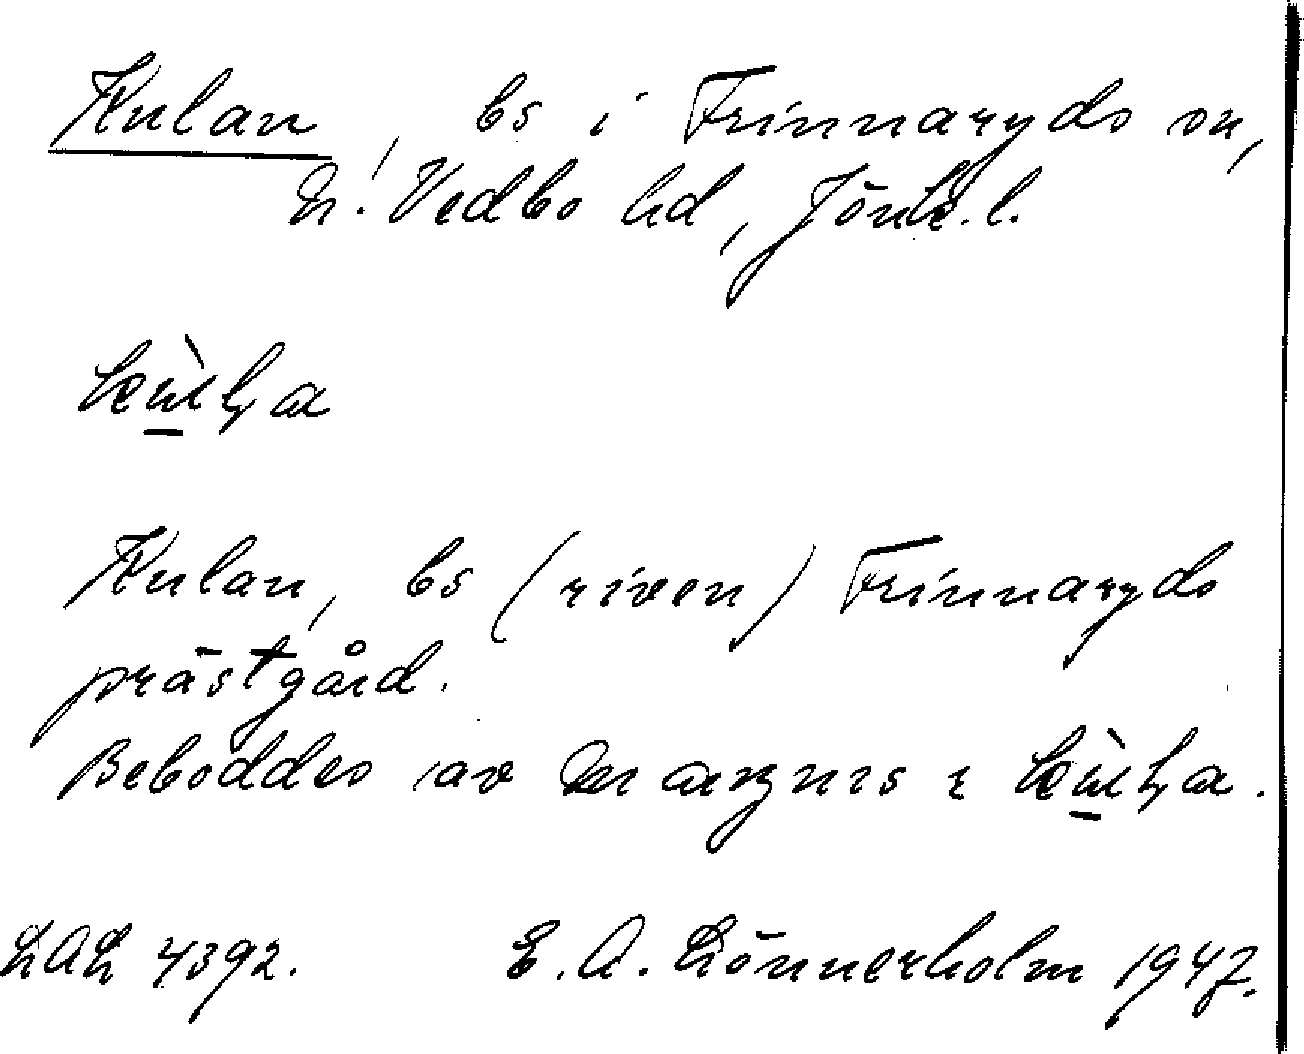 Kulan, bs i Frinnaryds sn,
N. Vedbo hd, Jönk. l.
Kulan, bs (riven) Frinnaryds
prästgård.
Beboddes av Magnus i
LAL 4392. E. A. Lönnerholm 1947.